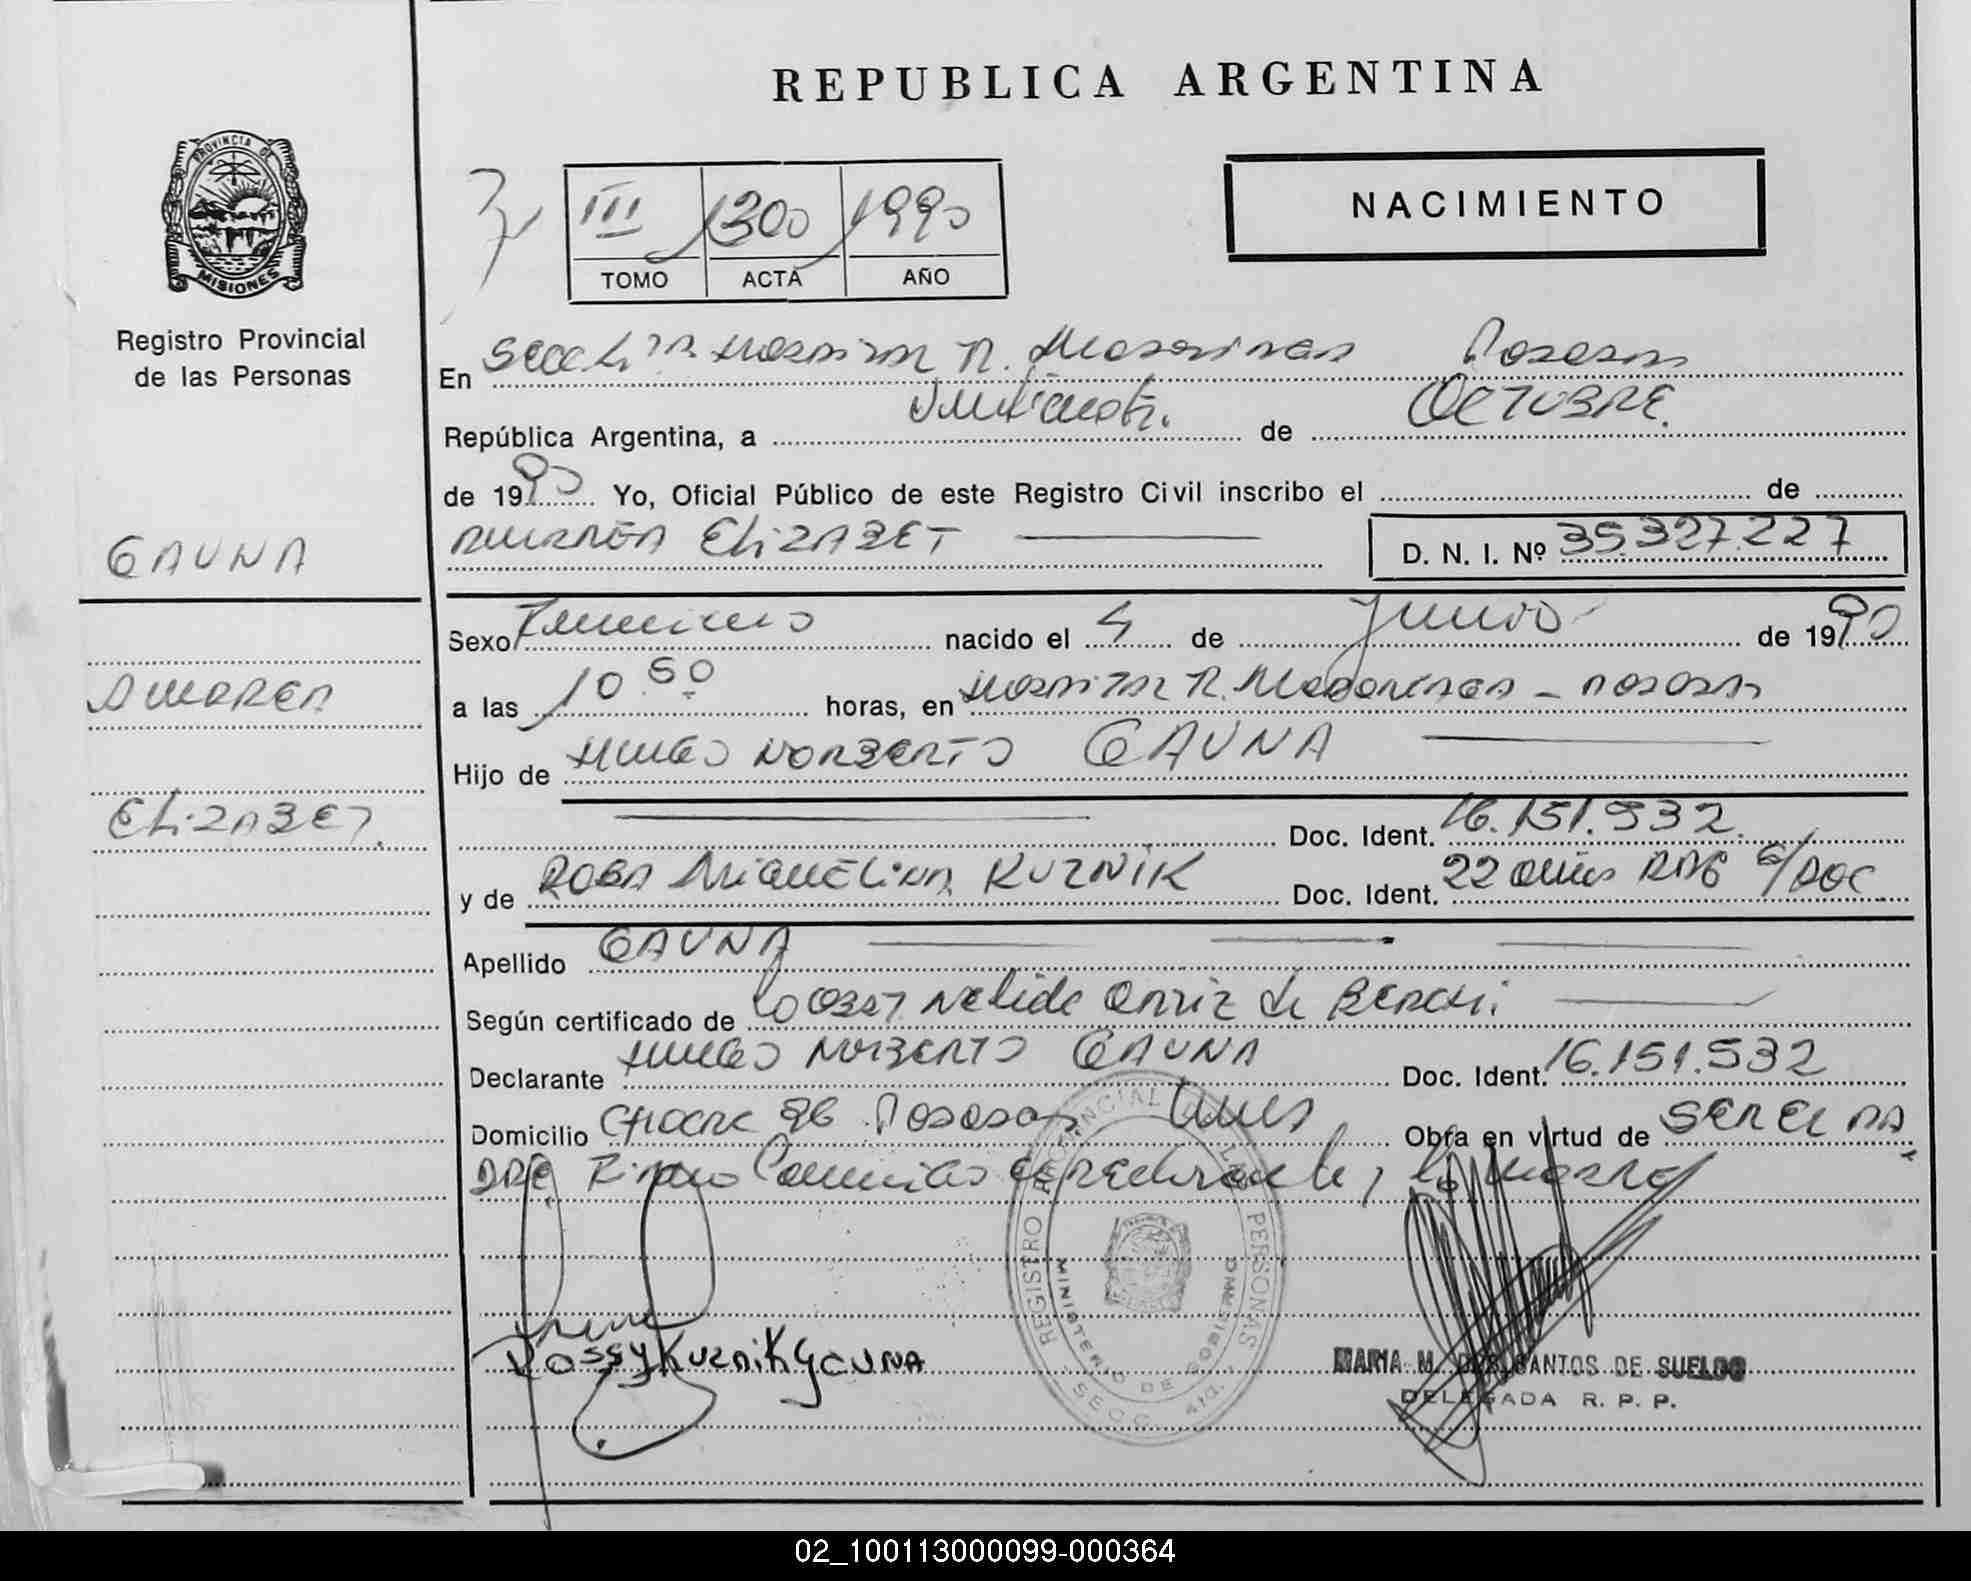 REPUBLICA ARGENTINA
PROVINCIA DE
MISIONES
Registro Provincial
de las Personas
III 1300 1990
TOMO ACTA AÑO
NACIMIENTO
En Hospital R. Posadas
República Argentina, a de OCTUBRE.
de 1990 Yo, Oficial Público de este Registro Civil inscribo el de
GAUNA
ELIZABET
D. N. I. Nº 35.327.227
Sexo Femenino nacido el 4 de Junio de 1990
a las 10.50 horas, en Hospital R. - Posadas
ELIZABET.
Hijo de HUGO NORBERTO GAUNA
Doc. Ident. 16.151.532.
y de ROSA MIQUELINA KUZNIK Doc. Ident. 22 años RAG S/DOC
Apellido GAUNA
Según certificado de Nelida Ortiz de
Declarante HUGO NORBERTO GAUNA Doc. Ident. 16.151.532
Domicilio CHACRA 96 Posadas Mnes Obra en virtud de SER EL PA
DRE Firma el declarante y la madre
REGISTRO PROVINCIAL DE LAS PERSONAS
MINISTERIO DE GOBIERNO
SECC. 4ta.
Rossy Kuznik Gauna
MARIA M. DOS SANTOS DE SUELDO
DELEGADA R. P. P.
02_100113000099-000364